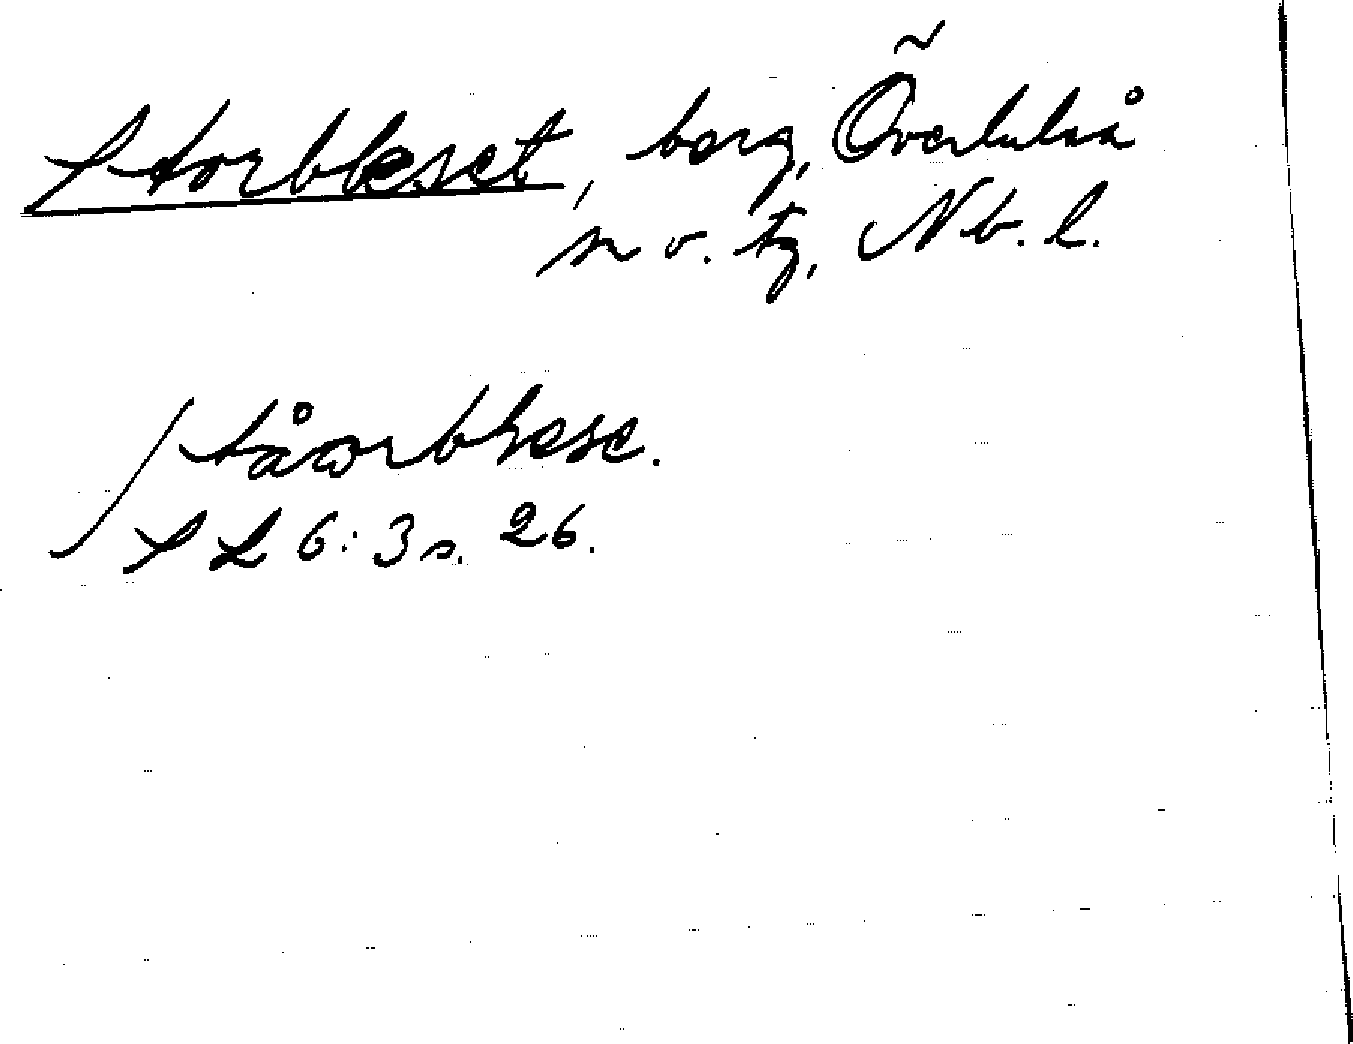 Storbleset, berg, Överluleå
sn o. tg, Nb. l.
ståorblese.
SL 6:3 s. 26.